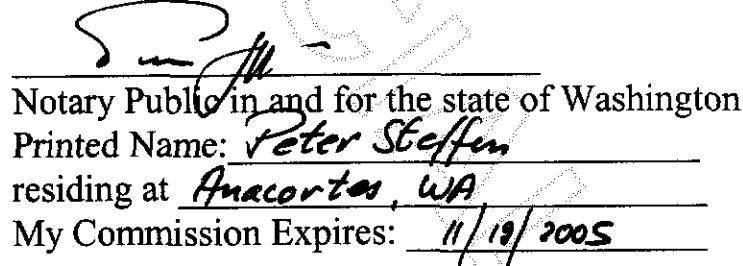 Notary Public in and for the state of Washington
Printed Name: Peter Steffen
residing at Anacortes, WA
My Commission Expires: 11/19/2005